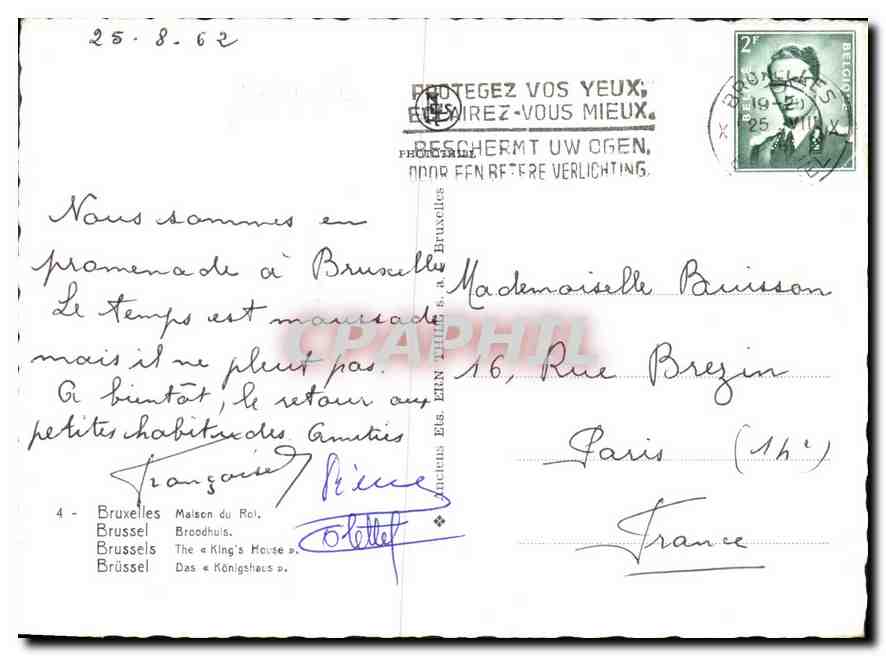 25.8.62
PROTEGEZ VOS YEUX,
ECLAIREZ-VOUS MIEUX.
BESCHERMT UW OGEN,
DOOR EEN BETERE VERLICHTING.
PHOTOTHILL
BRUXELLES
19-20
25 VIII
BELGIE
2F
BELGIQUE
Nous sommes en
promenade à Bruxelles
Le temps est maussade
mais il ne pleut pas.
A bientôt, le retour aux
petites habitudes. Amitiés
Françoise
Colette
Mademoiselle Buisson
16, Rue Brezin
Paris (14e)
France
4 - Bruxelles Maison du Roi.
Brussel Broodhuis.
Brussels The « King's House ».
Brüssel Das « Königshaus ».
Anciens Ets. ERN THILL s. a. Bruxelles
CPAPHIL